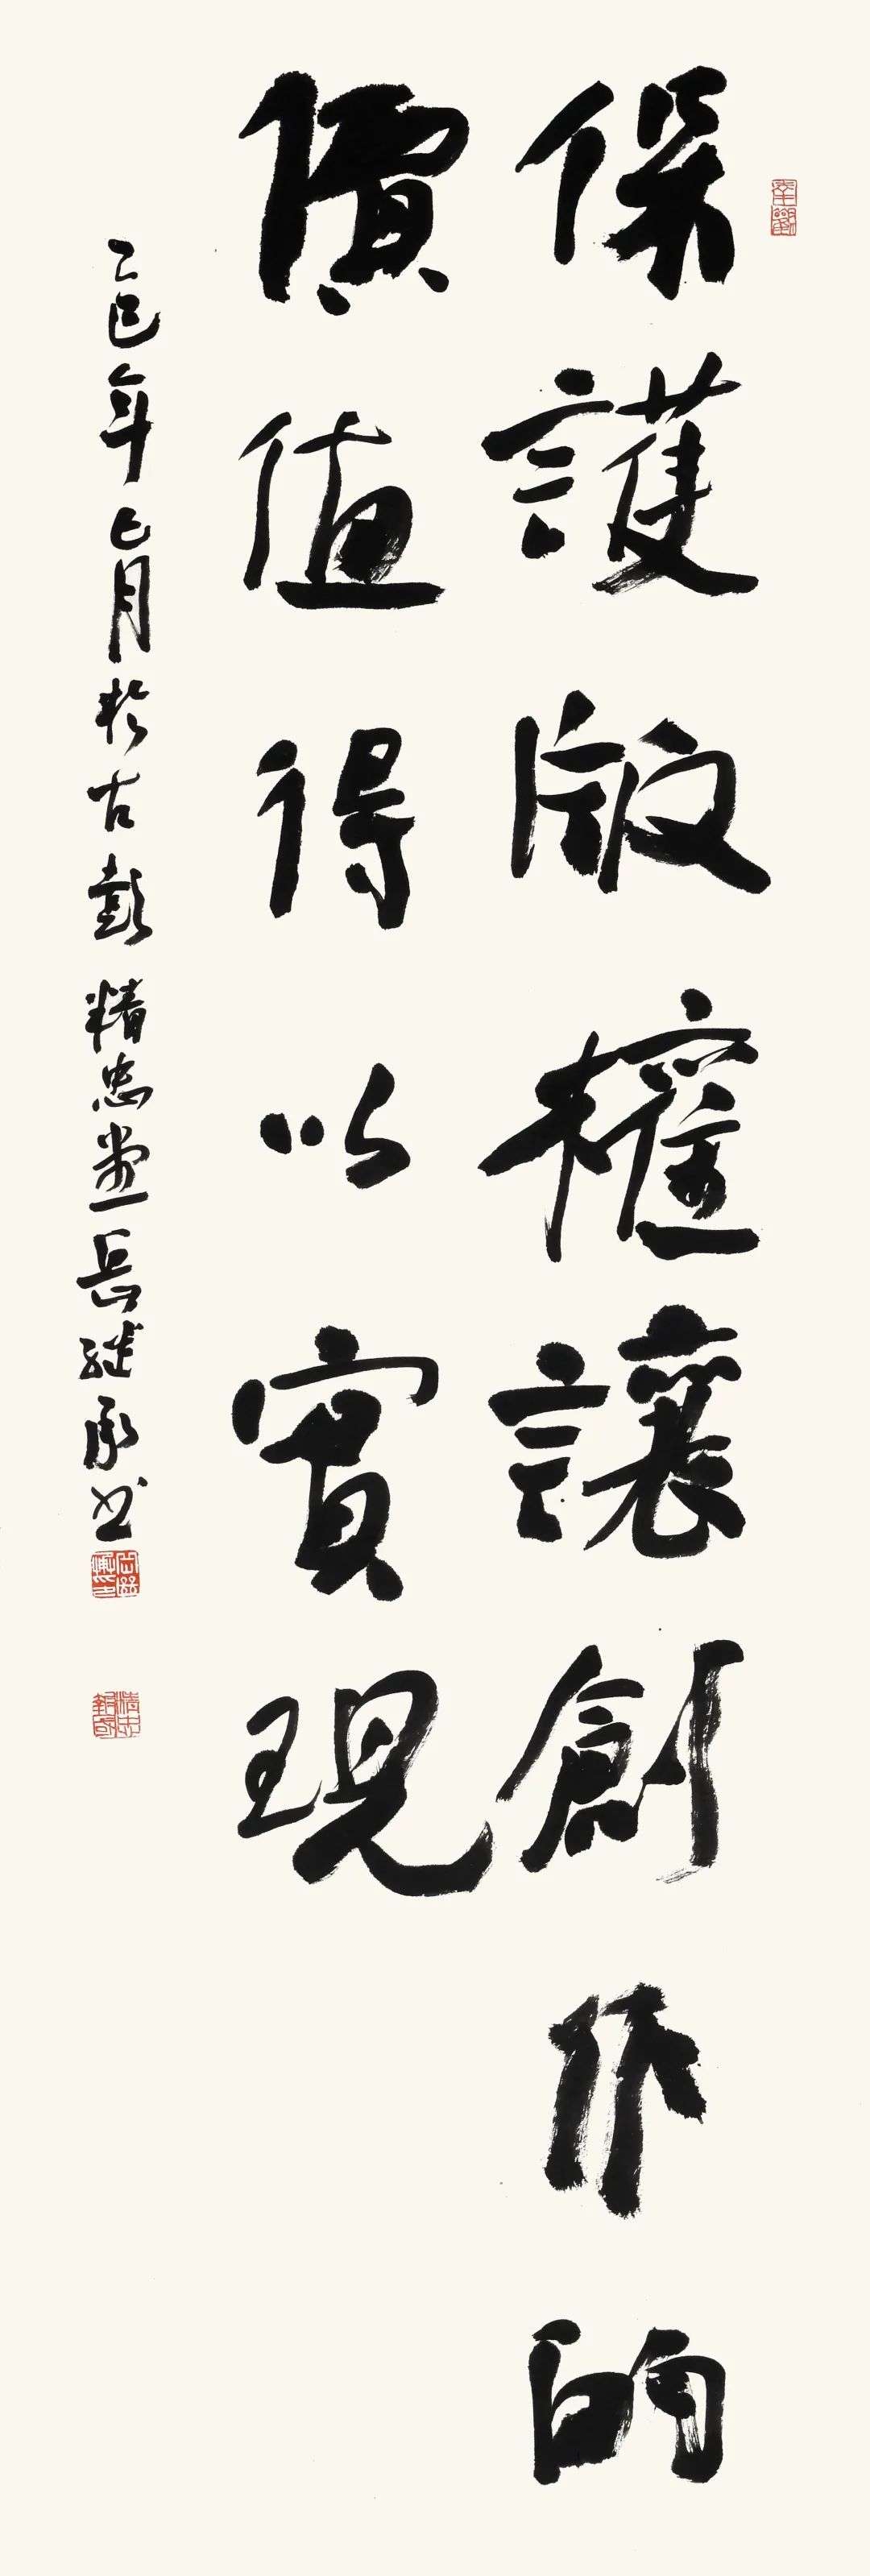 保護版權讓創作的
價值得以實現
乙巳年七月於古彭精忠堂岳继承书